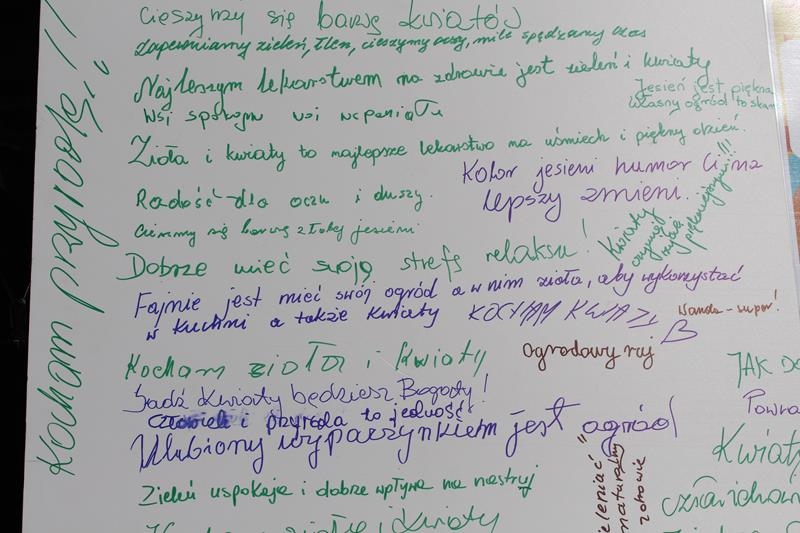 Kocham przyrodę!!
Cieszymy się barwą kwiatów
Zapewniamy zieleń, tlen, cieszymy oczy, mile spędzamy czas
Najlepszym lekarstwem na zdrowie jest zieleń i kwiaty
Jesień jest piękna
własny ogród to skarb
Wsi spokojna wsi wspaniała
Zioła i kwiaty to najlepsze lekarstwo na uśmiech i piękny dzień.
Kolor jesieni humor Ci na
lepszy zmieni.
Radość dla oczu i duszy.
Cieszmy się barwą złotej jesieni
Kwiaty
czynią
życie
piękniejszym!!!
Dobrze mieć swoją strefę relaksu!
Fajnie jest mieć swój ogród a w nim zioła, aby wykorzystać
w kuchni a także kwiaty
KOCHAM KWIATY
Wanda - super!
B
ogrodowy raj
Kocham zioła i kwiaty
JAK
Sadź kwiaty będziesz Bogaty!
Człowiek i przyroda to jedność
Ulubionym wypoczynkiem jest ogród
Zieleń uspokaja i dobrze wpływa na nastrój
naturalny
zdrowie
i kwiaty